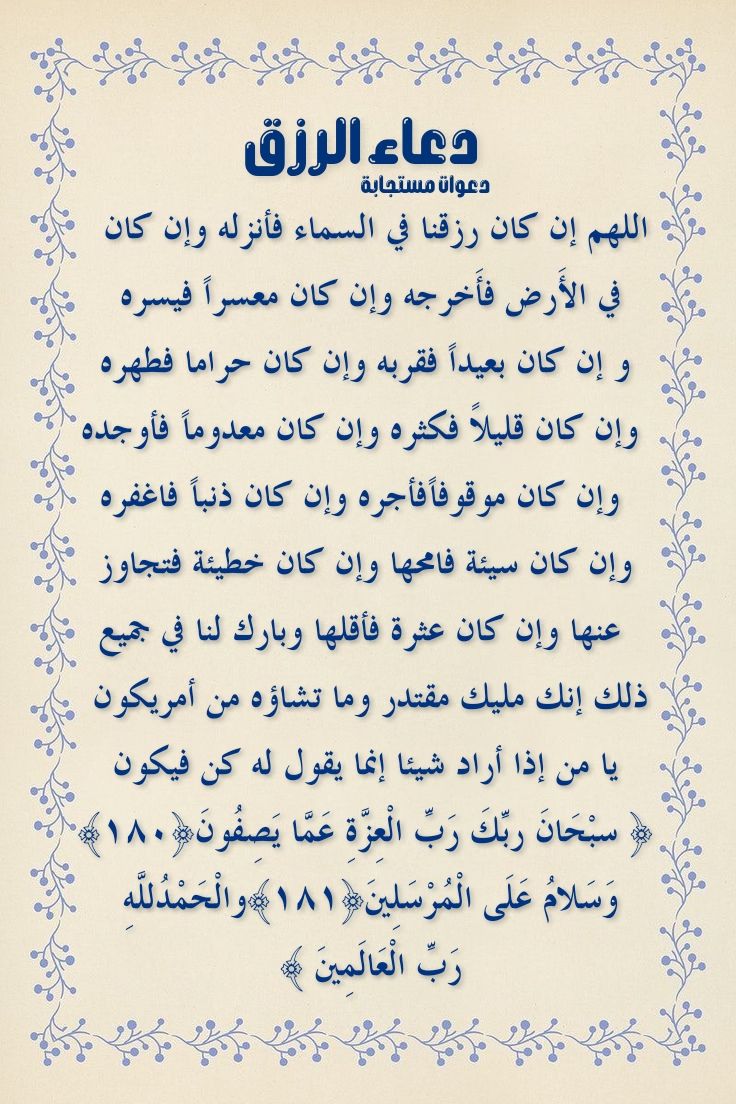 دعاء الرزق
دعوات مستجابة
اللهم إن كان رزقنا في السماء فأنزله وإن كان
في الأَرض فأَخرجه وإن كان معسراً فيسره
و إن كان بعيداً فقربه وإن كان حراما فطهره
وإن كان قليلاً فكثره وإن كان معدوماً فأوجده
وإن كان موقوفاًفأجره وإن كان ذنباً فاغفره
وإن كان سيئة فامحها وإن كان خطيئة فتجاوز
عنها وإن كان عثرة فأقلها وبارك لنا في جميع
ذلك إنك مليك مقتدر وما تشاؤه من أمريكون
يا من إذا أراد شيئا إنما يقول له كن فيكون
﴿ سبْحَانَ ربِّكَ رَبِّ الْعِزَّةِ عَمَّا يَصِفُونَ﴿١٨٠﴾
وَسَلامُ عَلَى الْمُرْسَلِينَ﴿١٨١﴾والْحَمْدُللَّهِ
رَبِّ الْعَالَمِينَ ﴾